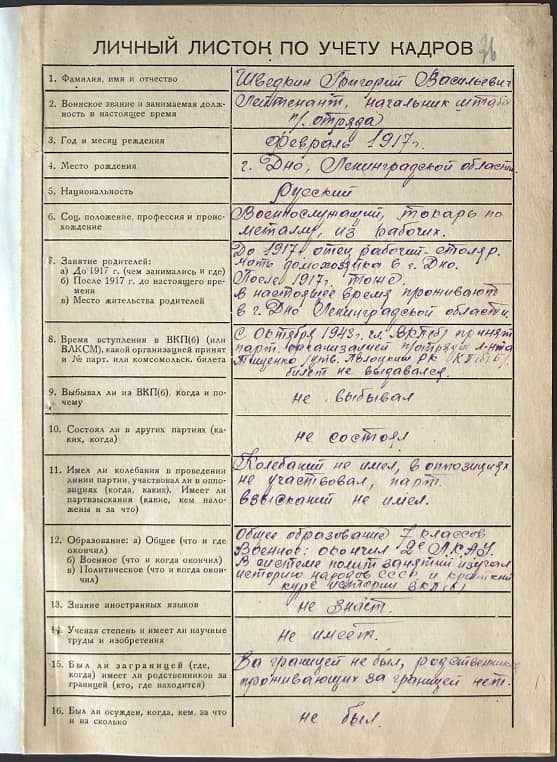 ЛИЧНЫЙ ЛИСТОК ПО УЧЕТУ КАДРОВ
76
1. Фамилия, имя и отчество
Шведкин Григорий Васильевич
2. Воинское звание и занимаемая долж-
ность в настоящее время
Лейтенант, начальник штаба
п/отряда
3. Год и месяц реждения
Февраль 1917г.
4. Место рождения
г. Дно, Ленинградской области.
5. Национальность
Русский
6. Соц. положение, профессия и проис-
хождение
Военнослужащий, токарь по
металлу, из рабочих.
7. Занятие родителей:
а) До 1917 г. (чем занимались и где)
б) После 1917 г. до настоящего вре-
мени
в) Место жительства родителей
До 1917г. отец рабочий-столяр.
мать домохозяйка в г. Дно.
После 1917г. тоже.
в настоящее время проживают
в г. Дно Ленинградской области.
8. Время вступления в ВКП(б) (или
ВЛКСМ), какой организацией принят
и № парт. или комсомольск. билета
С октября 1943г. чл. ВКП(б) принят
парт. организацией п/отряда л-нта
Тищенко (утв. Полоцким РК КП(б)Б)
билет не выдавался.
9. Выбывал ли из ВКП(б), когда и по-
чему
не выбывал
10. Состоял ли в других партиях (ка-
ких, когда)
не состоял
11. Имел ли колебания в проведении
линии партии, участвовал ли в оппо-
зициях (когда, каких). Имеет ли
партвзыскания (какие, кем нало-
жены и за что)
Колебаний не имел, в оппозициях
не участвовал, парт.
взысканий не имел.
12. Образование: а) Общее (что и где
окончил)
б) Военное (что и когда окончил)
в) Политическое (что и когда окон-
чил)
Общее образование 7 классов
Военное: окончил 2е ЛКАУ.
В системе полит занятий изучал
историю народов СССР и краткий
курс истории ВКП(б)
13. Знание иностранных языков
не знает.
14. Ученая степень и имеет ли научные
труды и изобретения
не имеет.
15. Был ли заграницей (где,
когда) имеет ли родственников за
границей (кто, где находится)
За границей не был, родственников
проживающих за границей нет.
16. Был ли осужден, когда, кем, за что
и на сколько
не был.